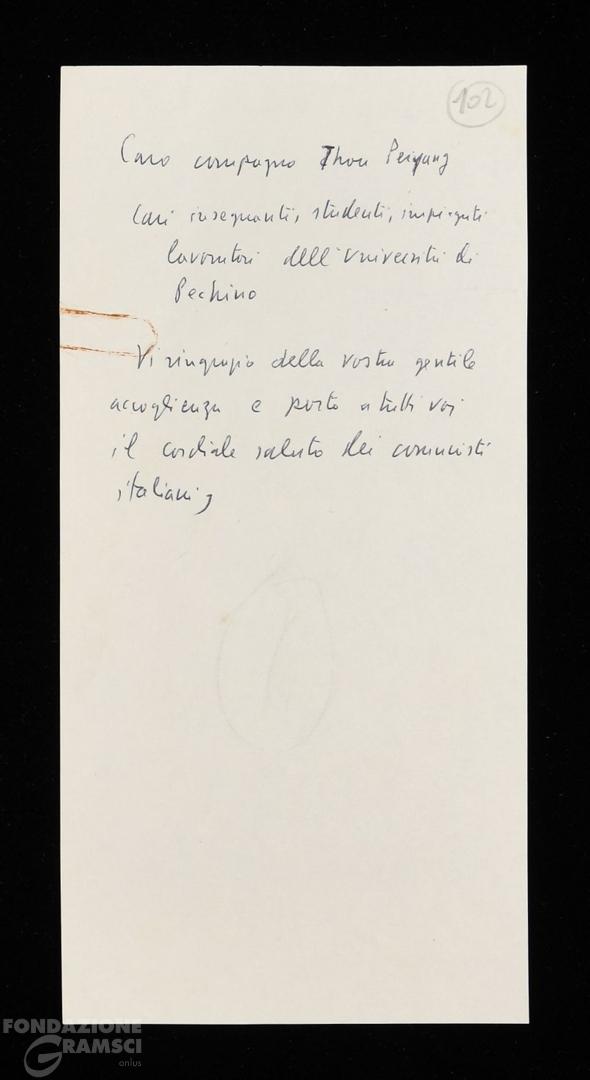 102
Caro compagno Zhou Peiyuang
Cari insegnanti, studenti, impiegati
lavoratori dell'Università di
Pechino
Vi ringrazio della vostra gentile
accoglienza e porto a tutti voi
il cordiale saluto dei comunisti
italiani,
FONDAZIONE
GRAMSCI
onlus